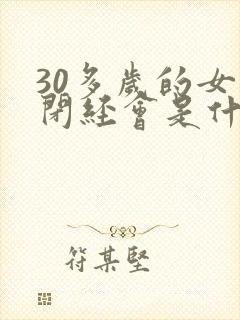 30多歲的女
閉經會是什
符某堅